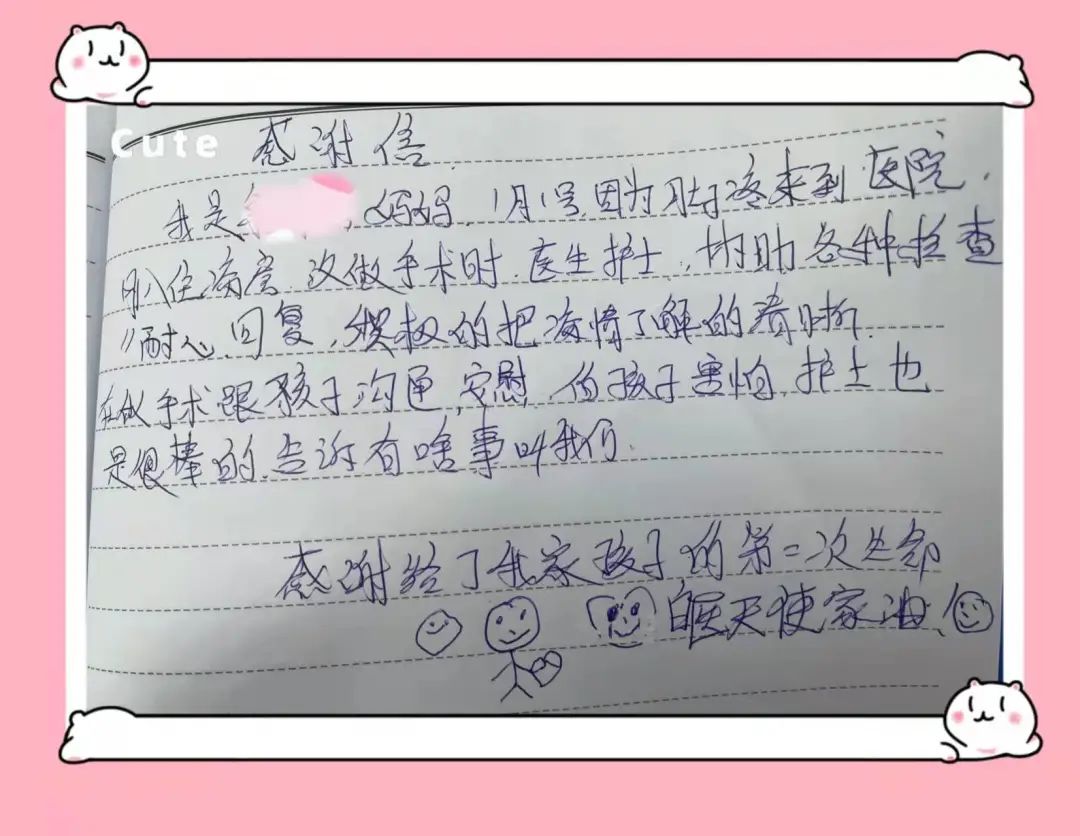 Cute
感谢信
我是 妈妈,1月1号因为肚疼来到医院.
入住病房 没做手术时.医生护士,协助各种检查
耐心回复,积极的把病情了解的清晰.
在做手术跟孩子沟通,安慰,怕孩子害怕,护士也
是很棒的.告诉有啥事叫我们.
感谢给了我家孩子的第二次生命
白衣天使家油.